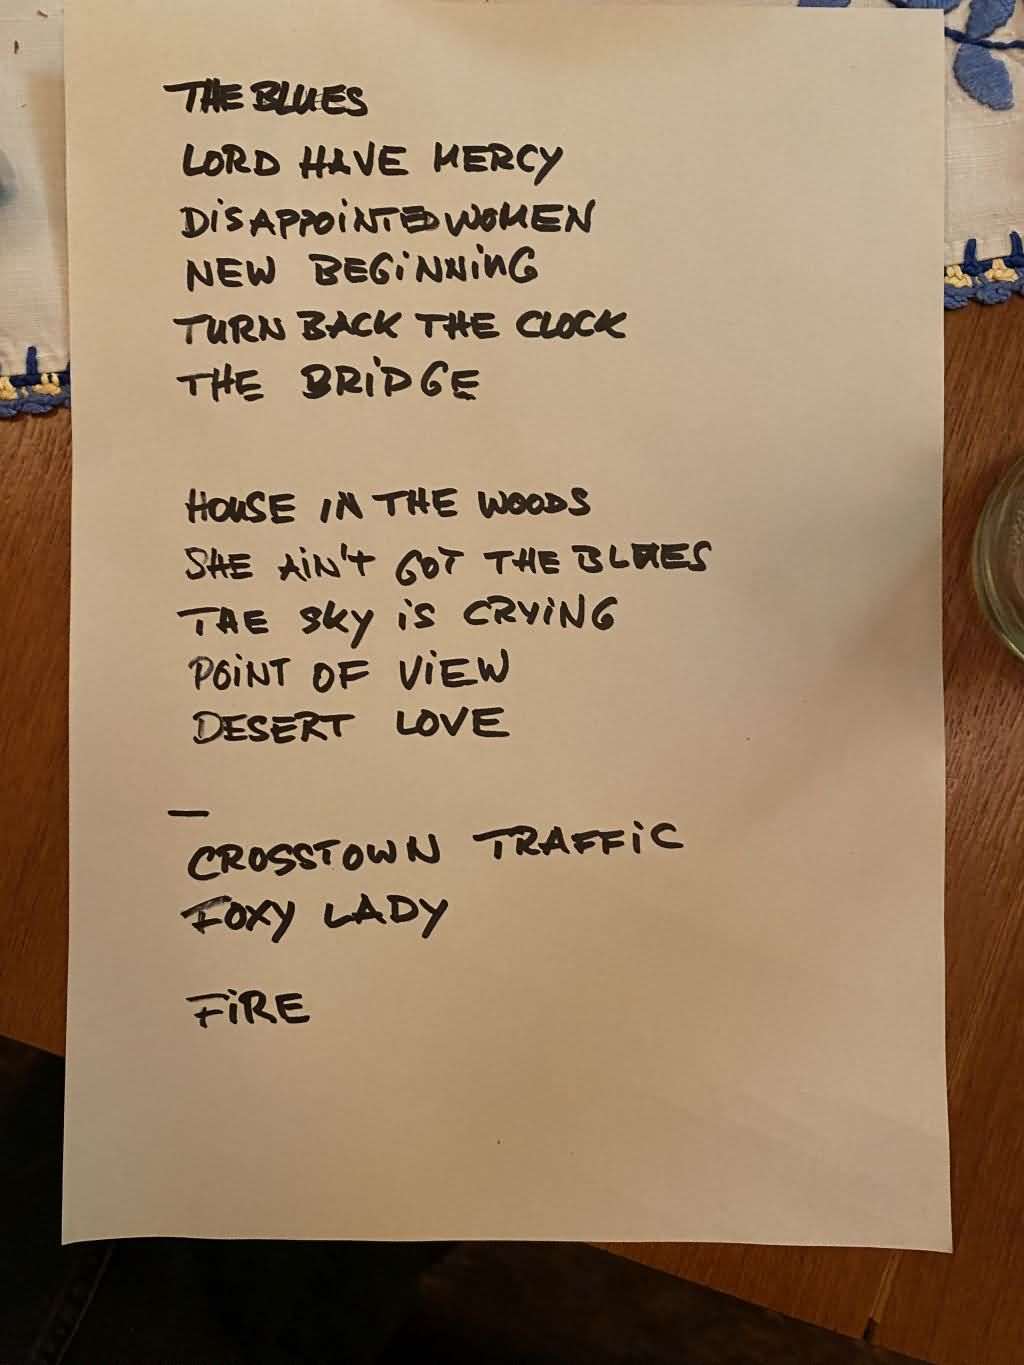 THE BLUES
LORD HAVE MERCY
DISAPPOINTED WOMEN
NEW BEGINNING
TURN BACK THE CLOCK
THE BRIDGE
HOUSE IN THE WOODS
SHE AIN'T GOT THE BLUES
THE SKY IS CRYING
POINT OF VIEW
DESERT LOVE
—
CROSSTOWN TRAFFIC
FOXY LADY
FIRE